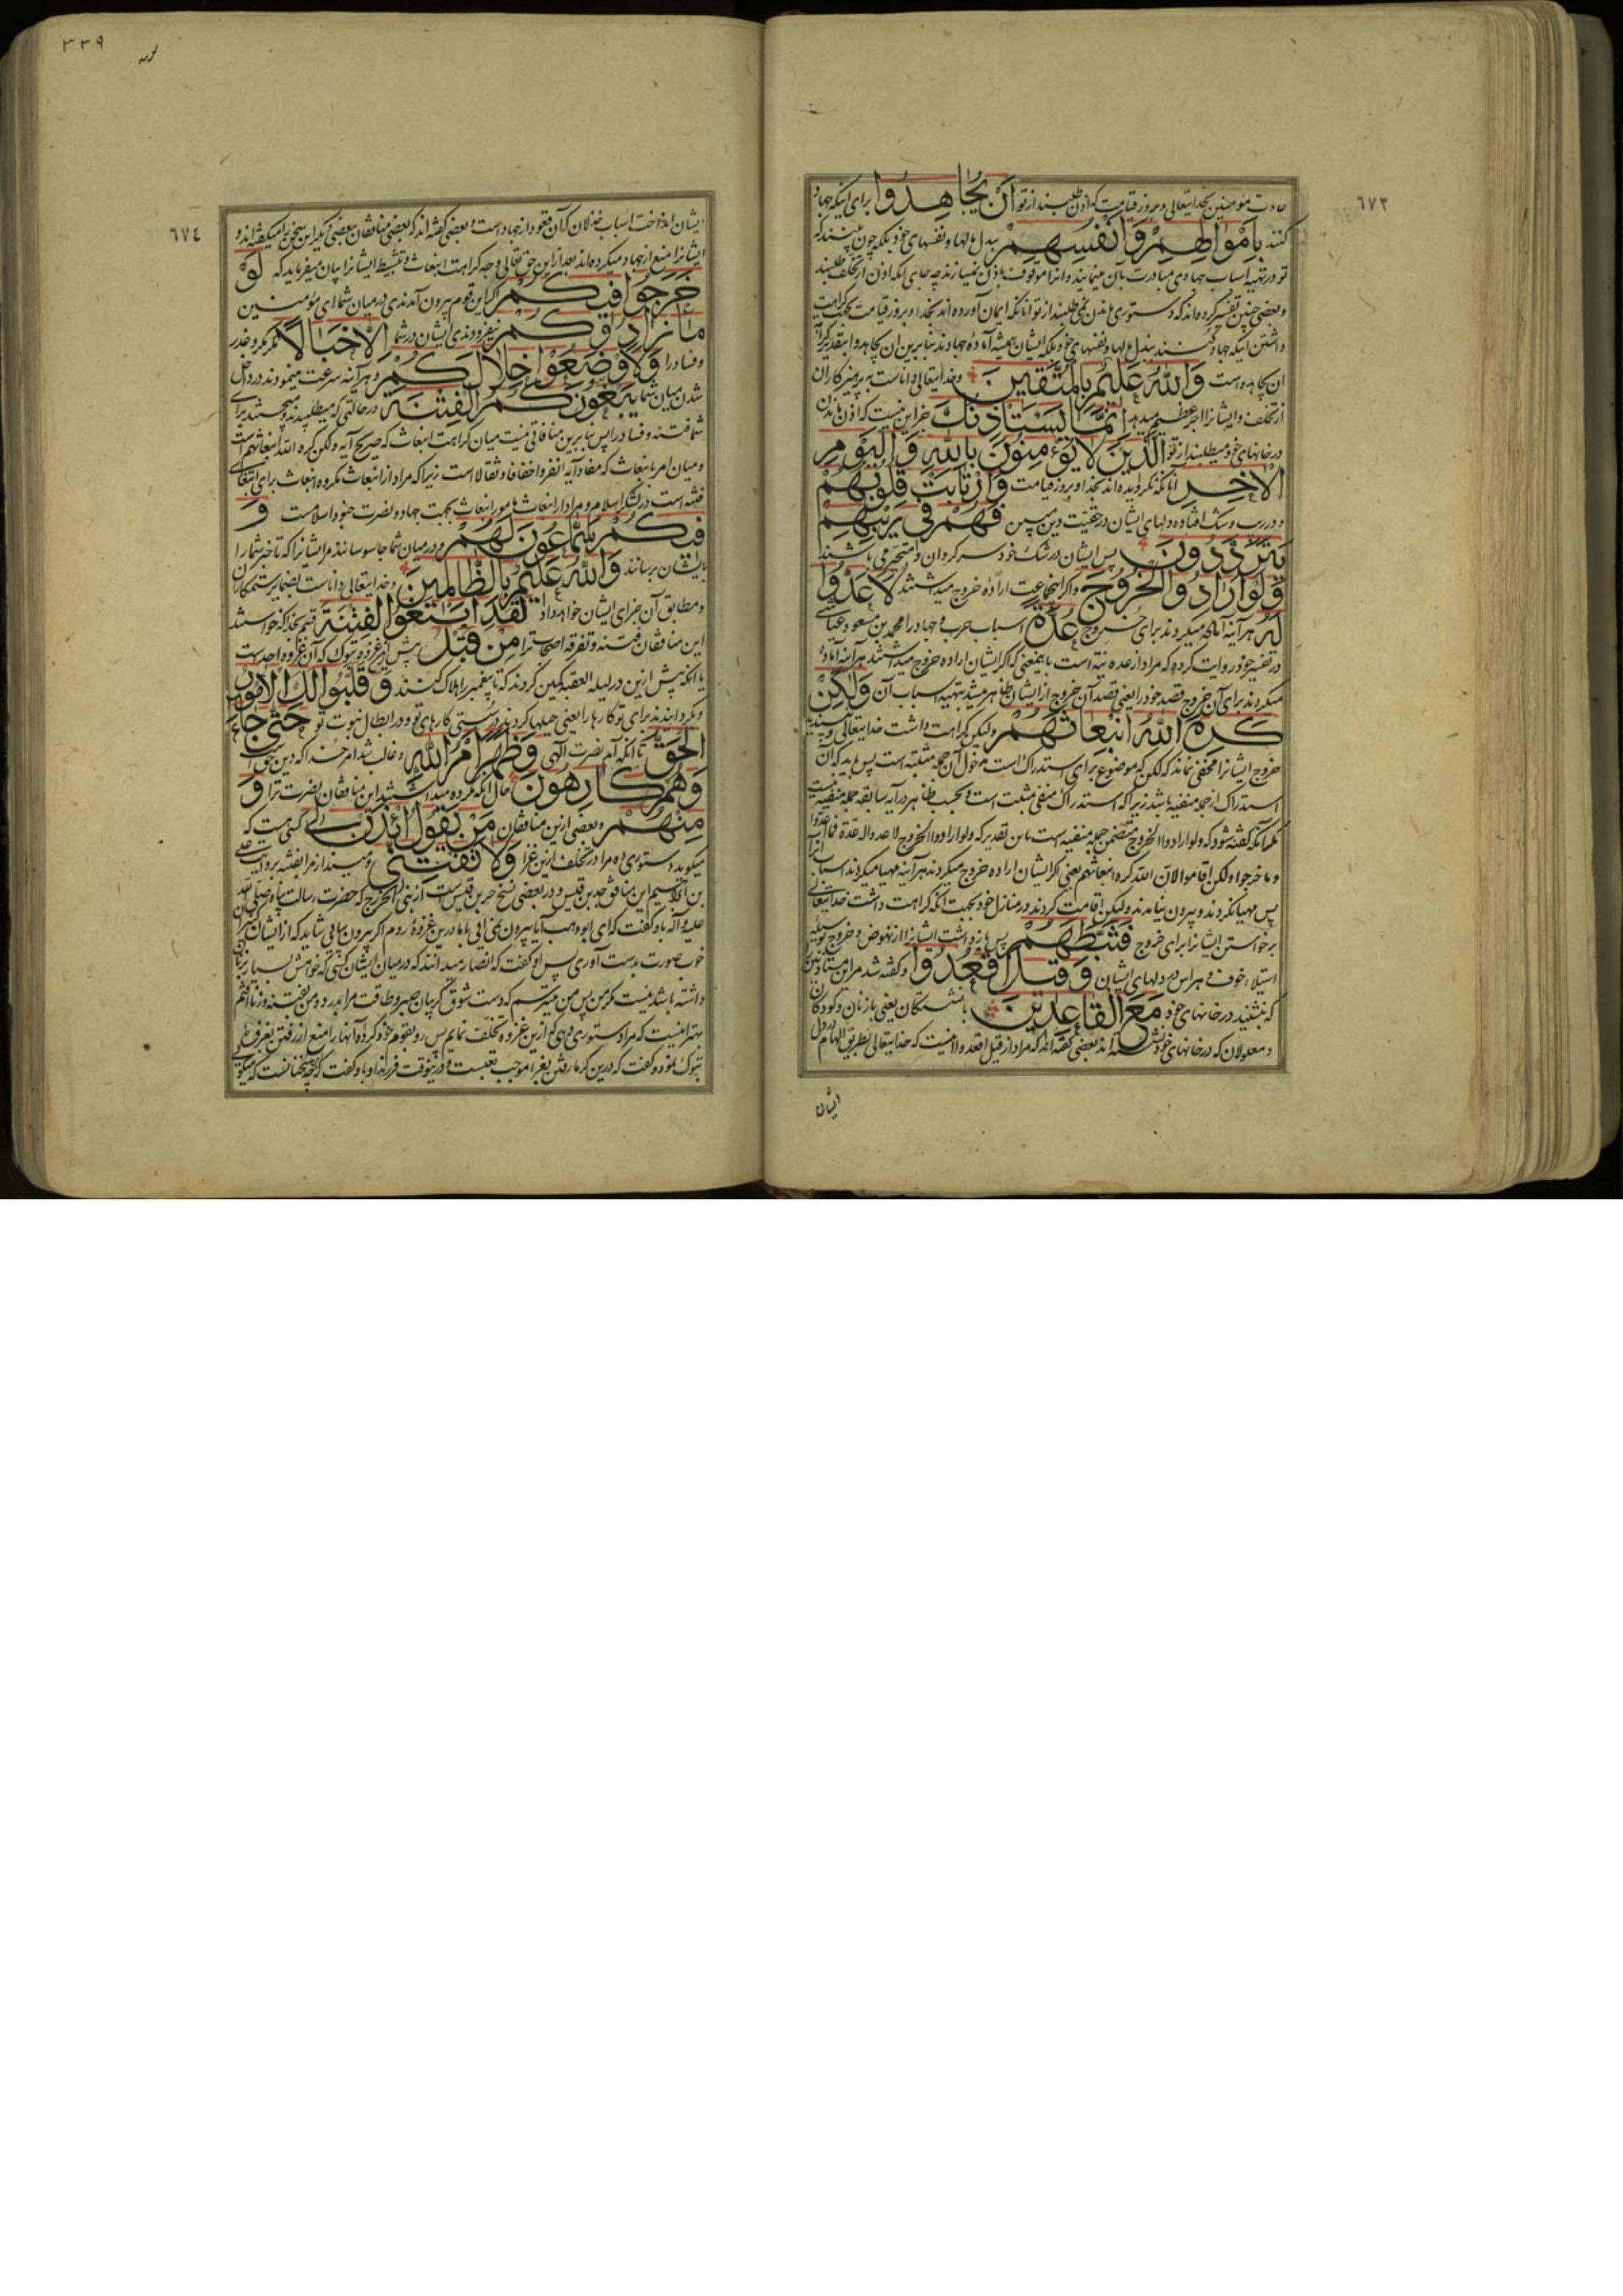 ٦٧٣
عادت مؤمنین بخدایتعالی و بروز قیامت که اذن طلبند از تو اَنْ یُجاهِدُوا برای اینکه جهاد
کنند بِاَمْوالِهِمْ وَاَنْفُسِهِمْ ببذل مالها و نفسهای خود بلکه چون بینند که
تو در تهیه اسباب جهادی مبادرت بآن مینمایند و آنرا موقوف باذن نمیسازند چه جای آنکه اذن از تخلف طلبند
و بعضی چنین تفسیر کرده‌اند که دستوری ماندن نمی‌طلبند از تو آنانکه ایمان آورده‌اند بخدا و بروز قیامت بجهت کراهت
داشتن اینکه جهاد کنند ببذل مالها و نفسهای خود بلکه ایشان همیشه آماده جهادند بنابرین ان یجاهدوا بتقدیر کراهة
ان یجاهدوا است وَاللهُ عَلیمٌ بِالْمُتَّقینَ و خدایتعالی داناست به پرهیزکاران
از تخلف و ایشانرا اجر عظیم میدهد اِنَّما یَسْتَأْذِنُكَ جز این نیست که اذن ماندن
در خانهای خود میطلبند از تو الَّذینَ لایُؤْمِنُونَ بِاللهِ وَالْیَوْمِ
الْآخِرِ آنانکه نگرویده‌اند بخدا و بروز قیامت وَارْتابَتْ قُلُوبُهُمْ
و در ریب و شک افتاده دلهای ایشان در حقیت دین مبین فَهُمْ فی رَیْبِهِمْ
یَتَرَدَّدُونَ پس ایشان در شک خود سرگردان و متحیر می‌باشند
وَلَوْ اَرادُوا الْخُرُوجَ و اگر اینجماعت اراده خروج میداشتند لَاَعَدُّوا
لَهُ هر آینه آماده میکردند برای خروج عُدَّةً اسباب حرب و جهاد را محمد بن مسعود عیاشی
در تفسیر خود روایت کرده که مراد از عده نیة است باینمعنی که اگر ایشان اراده خروج میداشتند هر آینه آماده
میکردند برای آن خروج قصد خود را یعنی قصد آن خروج از ایشان ظاهر میشد بتهیه اسباب آن وَلٰکِنْ
کَرِهَ اللهُ انْبِعاثَهُمْ ولیکن کراهت داشت خدایتعالی و نپسندید
خروج ایشانرا مخفی نماند که لکن که موضوع برای استدراک است مدخول آن جمله مثبته است پس باید که آن
استدراک از جمله منفیه باشد زیرا که استدراک منفی مثبت است و بحسب ظاهر در آیه سابقه جمله منفیه نیست
مگر آنکه گفته شود که ولو ارادوا الخروج متضمن جمله منفیه است باین تقدیر که ولو ارادوا الخروج لاعدوا له عدة فما اعدوا
و ما خرجوا ولکن اقاموا لان الله کره انبعاثهم یعنی اگر ایشان اراده خروج میکردند هر آینه مهیا میکردند اسباب آنرا
پس مهیا نکردند و بیرون نیامدند ولیکن اقامت کردند در منازل خود بجهت آنکه کراهت داشت خدایتعالی
برخواستن ایشانرا برای خروج فَثَبَّطَهُمْ پس بازداشت ایشانرا از نهوض و خروج بوسیله
استیلاء خوف و هراس در دلهای ایشان وَقیلَ اقْعُدُوا و گفته شد مر این مستاذنین
که بنشینید در خانهای خود مَعَ الْقاعِدینَ با نشستگان یعنی با زنان و کودکان
و معلولان که در خانهای خود نشسته‌اند بعضی گفته‌اند که مراد از قیل اقعدوا اینست که خدایتعالی بطریق الهام در دل
ایشان
٣٣٩
٦٧٤
ایشان انداخت اسباب خذلان که آن قعود از جهاد است و بعضی گفته‌اند که بعضی منافقان ببعضی دیگر این سخن را میگفته‌اند و
ایشانرا منع از جهاد میکرده‌اند بعد ازین حق تعالی وجه کراهت انبعاث و تثبیط ایشانرا بیان میفرماید که لَوْ
خَرَجُوا فیکُمْ اگر این قوم بیرون آمدندی در میان شما ای مؤمنین
ما زادُوکُمْ نیفزودندی ایشان در شما اِلّا خَبالًا مگر مکر و غدر
و فساد را وَلَاَوْضَعُوا خِلالَکُمْ و هر آینه سرعت مینمودند در داخل
شدن میان شما یَبْغُونَکُمُ الْفِتْنَةَ در حالتی که میطلبیدند و میجستند برای
شما فتنه و فساد را پس بنابرین منافاتی نیست میان کراهت انبعاث که صریح آیه ولکن کره الله انبعاثهم است
و میان امر بانبعاث که مفاد آیه انفروا خفافا و ثقالا است زیرا که مراد از انبعاث مکروه انبعاث برای ابتغای
فتنه است در لشکر اسلام و مراد از انبعاث مامور انبعاث بجهت جهاد و نصرت جنود اسلامست وَ
فیکُمْ سَمّاعُونَ لَهُمْ و در میان شما جاسوسانند مر ایشانرا که تا خبر شما را
بایشان برسانند وَاللهُ عَلیمٌ بِالظّالِمینَ و خدایتعالی داناست بضمایر ستمکاران
و مطابق آن جزای ایشان خواهد داد لَقَدِ ابْتَغَوُا الْفِتْنَةَ قسم بخدا که خواستند
این منافقان فتنه و تفرقه اصحاب ترا مِنْ قَبْلُ پیش از غزوه تبوک که آن غزوه احد است
یا آنکه پیش ازین در لیلة العقبه کمین کردند که تا پیغمبر را هلاک کنند وَقَلَّبُوا لَكَ الْاُمُورَ
و بگردانیدند برای تو کارها را یعنی حیلها کردند در سستی کارهای تو و در ابطال نبوت تو حَتّٰی جاءَ
الْحَقُّ تا آنکه آمد نصرت الهی وَظَهَرَ اَمْرُ اللهِ و غالب شد امر خدا که دین حق است
وَهُمْ کارِهُونَ حال آنکه مکروه میداشتند این منافقان نصرت ترا وَ
مِنْهُمْ و بعضی ازین منافقان مَنْ یَقُولُ ائْذَنْ لی کسی هست که
میگوید دستوری ده مرا در تخلف ازین غزا وَلاتَفْتِنّی و میندازمرا بفتنه بروایت علی
بن ابراهیم این منافق جد بن قیس و در بعضی نسخ حر بن قیس است از بنی الخزرج که حضرت رسالت پناه صلی الله
علیه و آله باو گفت که ای ابو وهب آیا بیرون نمی‌آیی با ما درین غزوه روم اگر بیرون بیایی شاید که از ایشان کنیزان
خوب صورت بدست آوری پس او گفت که انصار میدانند که در میان ایشان کسی که خواهش بسیار بزنان
داشته باشد نیست مگر من پس من میترسم که دست شوق گریبان صبر و طاقت مرا بدرد و من بفتنه و زنا افتم
بهتر اینست که مرا دستوری دهی که ازین غزوه تخلف نمایم پس رو بقوم خود کرده آنها را منع از رفتن بغزوه
تبوک نمود و گفت که درین گرما رفتن بغزا موجب تعبست و درینوقت فرزند او باو گفت که این چه سخنانست که میگویی